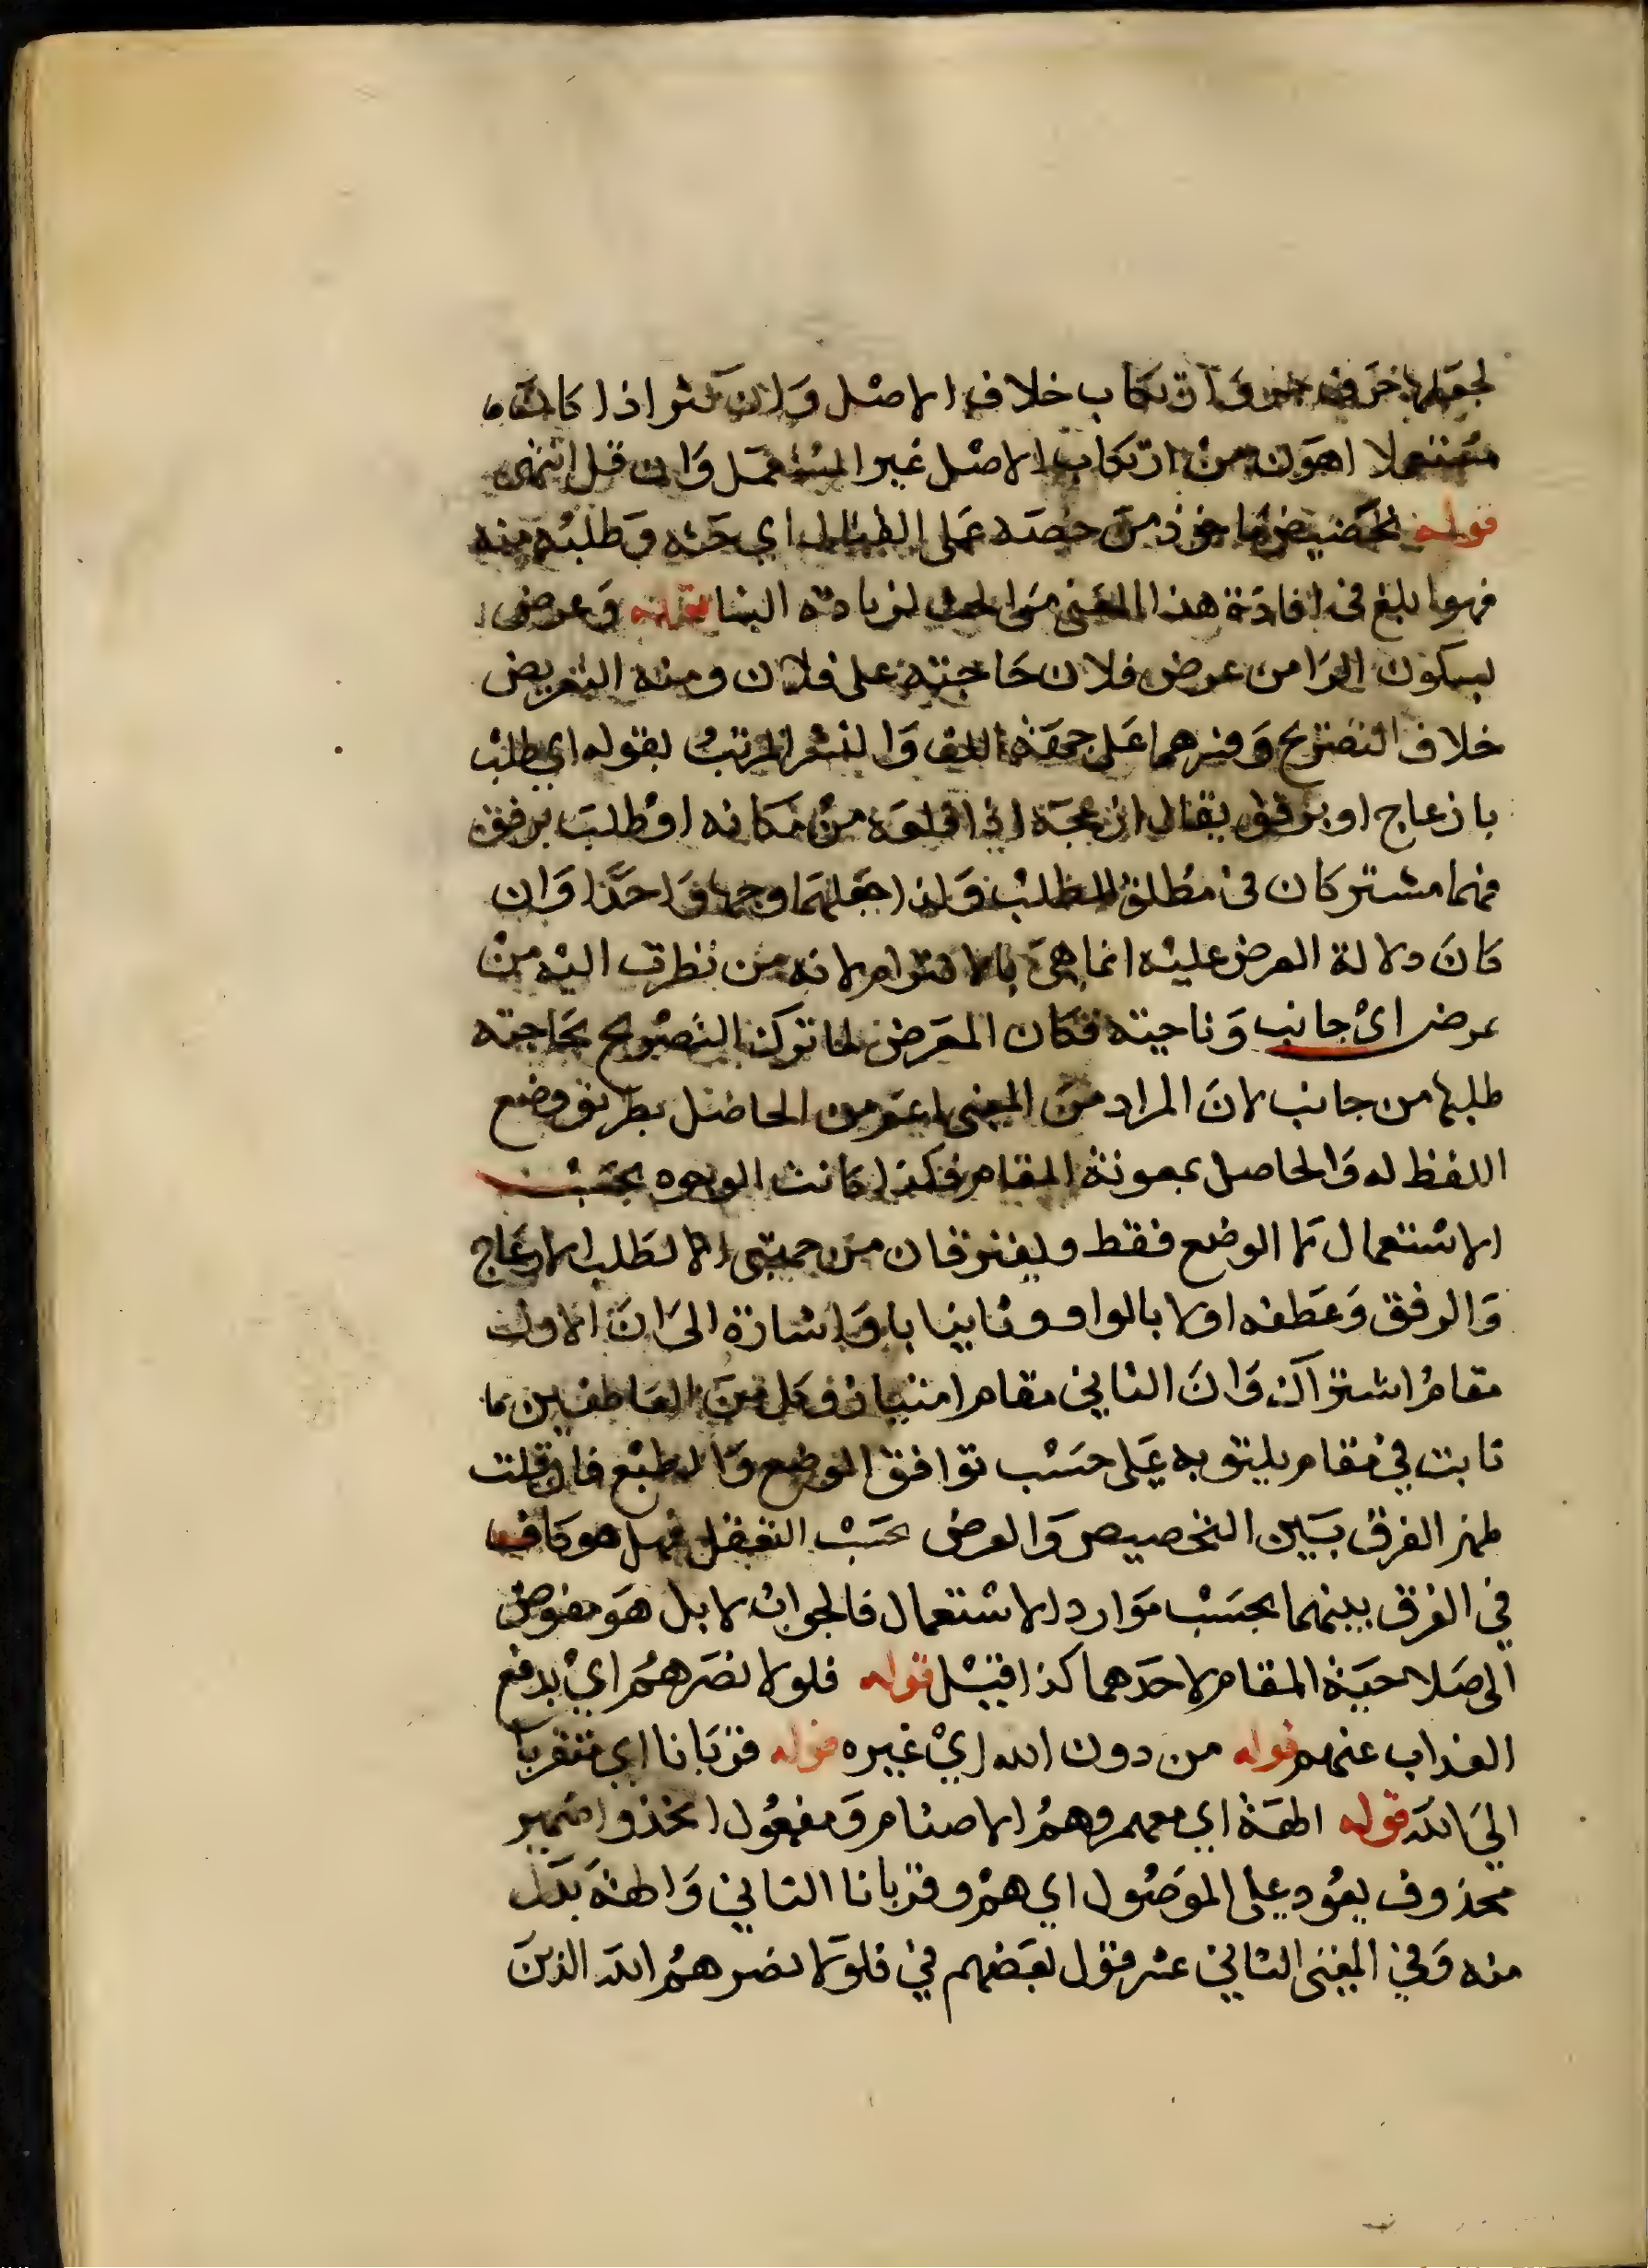 لجعلها حرف جر وارتكاب خلاف الاصل وان كثر اذا كان
مستعملا اهون من ارتكاب الاصل غير المستعمل وان قل انتهى
قوله تحضيض ماخوذ من حضه على القتال اي حثه وطلبه منه
فهو ابلغ في افادة هذا المعنى من الحث لزيادة البنا قوله وعرض
بسكون الرا من عرض فلان حاجته على فلان ومنه التعريض
خلاف التصريح وفسرهما على جهة اللف والنشر المرتب بقوله اي طلب
بازعاج او برفق يقال ازعجه اذا اقلعه من مكانه او طلب برفق
فهما مشتركان في مطلق الطلب ولذا جعلهما وجها واحدا وان
كان دلالة العرض عليه انما هي بالالتزام لانه من نظرت اليه من
عرض اي جانب وناحيته فكان المعرض لما ترك التصريح بحاجته
طلبها من جانب لان المراد من المعنى اعم من الحاصل بطريق وضع
اللفظ له والحاصل بمعونة المقام وكذا كانت الوجوه بحسب
الاستعمال لا الوضع فقط ويفترقان من حيثي الطلب الازعاج
والرفق وعطفه اولا بالواو وثانيا باو اشارة الى ان الاول
مقام اشتراك وان الثاني مقام امتياز وكل من العاطفين
ثابت في مقام يليق به على حسب توافق الوضع والطبع فان قلت
ظهر الفرق بين التحضيض والعرض بحسب التعقل فهل هو كاف
في الفرق بينهما بحسب موارد الاستعمال فالجواب لا بل هو مفوض
الى صلاحية المقام لاحدهما كذا قيل قوله فلولا نصرهم اي بدفع
العذاب عنهم قوله من دون الله اي غيره قوله قربانا اي متقربا
الى الله قوله الهة اي معهم وهم الاصنام ومفعول اتخذوا ضمير
محذوف يعود على الموصول اي هم وقربانا الثاني والهة بدل
منه وفي المغني الثاني عشر قول بعضهم في فلولا نصرهم الله الذين